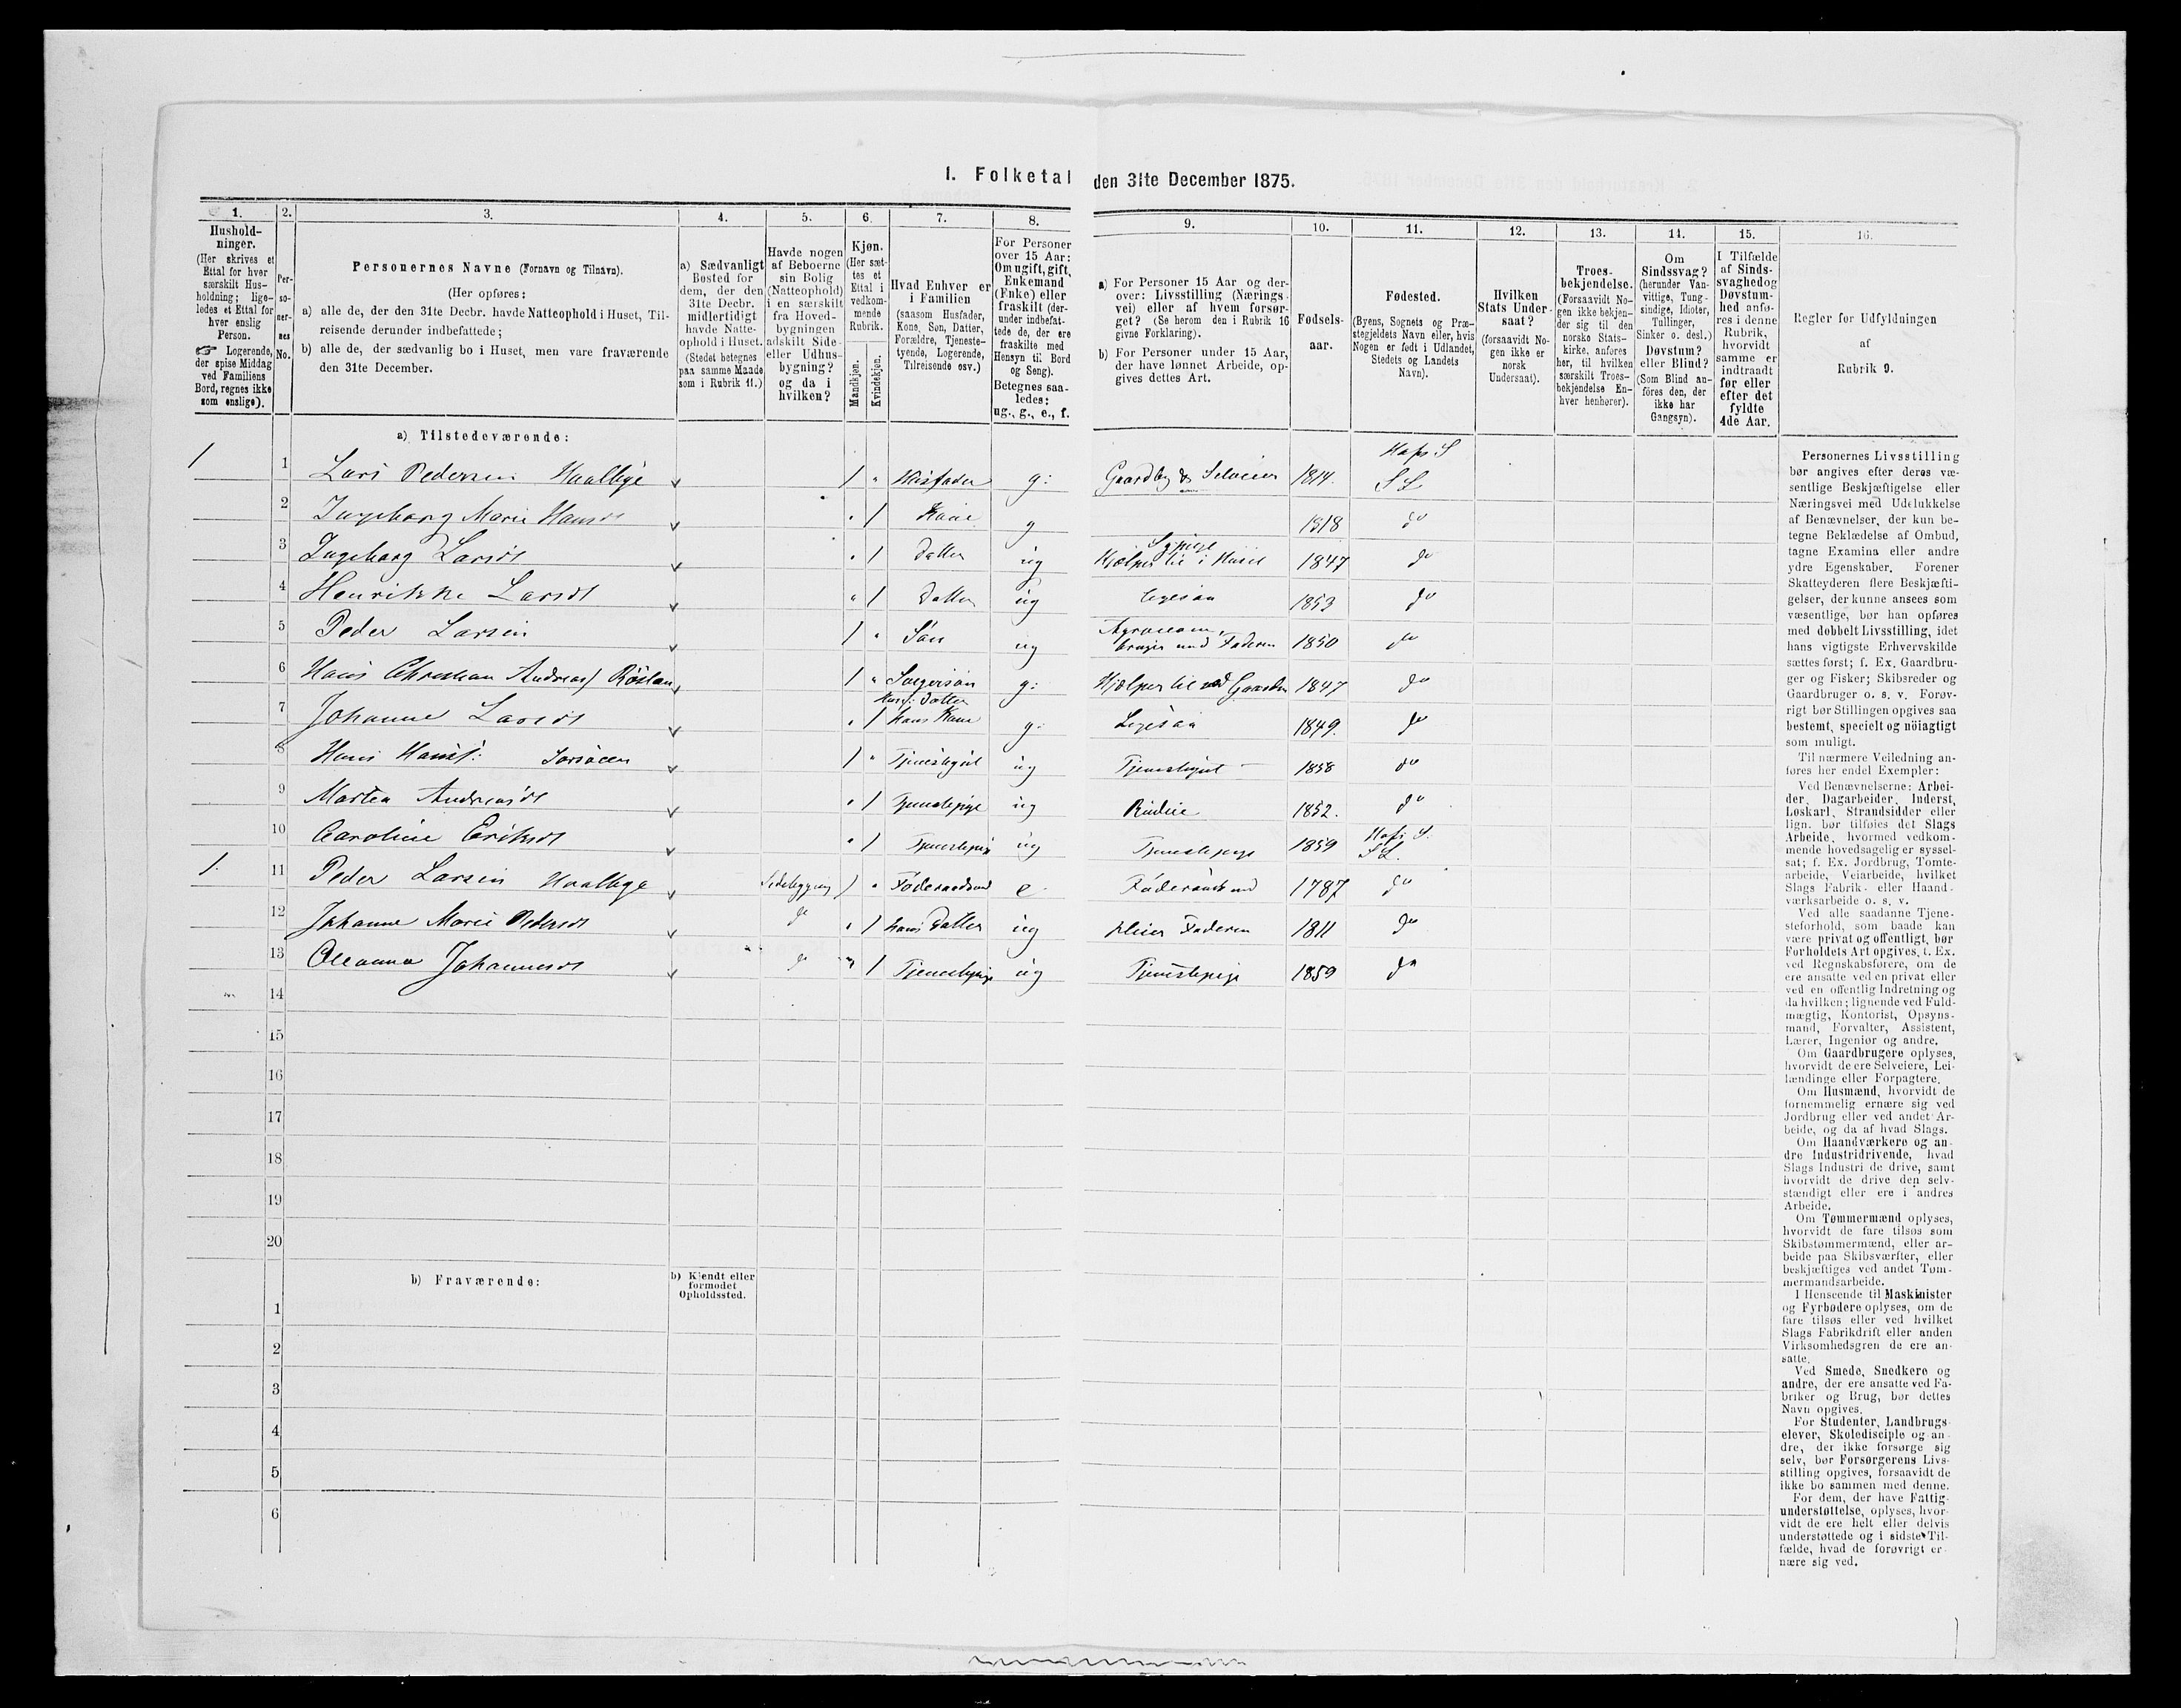 I. Folketal den 31te December 1875.
1. 2. 3. 4. 5. 6. 7. 8. 9. 10. 11. 12. 13. 14. 15. 16.
Hushold-
ninger.
(Her skrives et
Ettal for hver
særskilt Hus-
holdning; lige-
ledes et Ettal for
hver enslig
Person.
☞ Logerende,
der spise Middag
ved Familiens
Bord, regnes ikke
som enslige).
Per-
so-
ner-
nes
No.
Personernes Navne (Fornavn og Tilnavn).
(Her opføres:
a) alle de, der den 31te Decbr. havde Natteophold i Huset, Til-
reisende derunder indbefattede;
b) alle de, der sædvanlig bo i Huset, men vare fraværende
den 31te December.
a) Sædvanligt
Bosted for
dem, der den
31te Decbr.
midlertidigt
havde Natte-
ophold i Huset.
(Stedet betegnes
paa samme Maade
som i Rubrik 11.)
Havde nogen
af Beboerne
sin Bolig
(Natteophold)
i en særskilt
fra Hoved-
bygningen
adskilt Side-
eller Udhus-
bygning?
og da i
hvilken?
Kjøn.
(Her sæt-
tes et
Ettal i
vedkom-
mende
Rubrik.
Mandkjøn.
Kvindekjøn.
Hvad Enhver er
i Familien
(saasom Husfader,
Kone, Søn, Datter,
Forældre, Tjeneste-
tyende, Logerende,
Tilreisende osv.)
For Personer
over 15 Aar:
Om ugift, gift,
Enkemand
(Enke) eller
fraskilt (der-
under indbefat-
tede de, der ere
fraskilte med
Hensyn til Bord
og Seng).
Betegnes saa-
ledes:
ug., g., e., f.
a) For Personer 15 Aar og der-
over: Livsstilling (Nærings-
vei) eller af hvem forsør-
get? (Se herom den i Rubrik 16
givne Forklaring).
b) For Personer under 15 Aar,
der have lønnet Arbeide, op-
gives dettes Art.
Fødsels-
aar.
Fødested.
(Byens, Sognets og Præ-
stegjeldets Navn eller, hvis
Nogen er født i Udlandet,
Stedets og Landets
Navn).
Hvilken
Stats Under-
saat?
(forsaavidt No-
gen ikke er
norsk
Undersaat).
Troes-
bekjendelse.
(Forsaavidt No-
gen ikke bekjen-
der sig til den
norske Stats-
kirke, anføres
her, til hvilken
særskilt Troes-
bekjendelse En-
hver henhører).
Om
Sindssvag?
(herunder Van-
vittige, Tung-
sindige, Idioter,
Tullinger,
Sinker o. desl.)
Døvstum?
eller Blind?
(Som Blind an-
føres den, der
ikke har
Gangsyn).
I Tilfælde
af Sinds-
svaghed og
Døvstum-
hed anfø-
res i denne
Rubrik,
hvorvidt
samme er
indtraadt
før eller
efter det
fyldte
4de Aar.
Regler for Udfyldningen
af
Rubrik 9.
a) Tilstedeværende:
1 1 Lars Pedersen Haalbye 1 " Husfader g: Gaardbr & Selveier 1814. Hofs S S L
2 Ingeborg Marie Hansdt " 1 Kone g 1818 do
3 Ingeborg Larsdt " 1 Datter ug Sypige Hjælper til i Huset 1847 do
4 Henrikke Larsdt " 1 Datter ug Ligesaa 1853 do
5 Peder Larsen 1 " Søn ug Agronom, bruger med Faderen 1850 do
6 Hans Christian Andreas 1 " Svigersøn g: Hjælper til ved Gaarden 1847 do
7 Johanne Larsdt " 1 Husf: Datter hans Kone g: Ligesaa 1849. do
8 Hans Hans: 1 " Tjenestegut ug Tjenestegut 1858 do
9 Marthea Andreasdt " 1 Tjenestepige ug Budeie 1852. do
10 Caroline Eriksdt " 1 Tjenestepige ug Tjenestepige 1859 Hofs S. S L.
1. 11 Peder Larsen Haalbye Sidebygning 1 " Føderaadsmd e Føderaadsmd 1787 do
12 Johanne Marie Pedersdt do " 1 hans Datter ug pleier Faderen 1811 do
13 Oleanna Johannesdt do " 1 Tjenestepige ug Tjenestepige 1859 do
14
15
16
17
18
19
20
b) Fraværende:
b) Kjendt eller
formodet
Opholdssted.
1
2
3
4
5
6
Personernes Livsstilling
bør angives efter deres væ-
sentlige Beskjæftigelse eller
Næringsvei med Udelukkelse
af Benævnelser, der kun be-
tegne Beklædelse af Ombud,
tagne Examina eller andre
ydre Egenskaber. Forener
Skatteyderen flere Beskjæfti-
gelser, der kunne ansees som
væsentlige, bør han opføres
med dobbelt Livsstilling, idet
hans vigtigste Erhvervskilde
sættes først; f. Ex. Gaardbru-
ger og Fisker; Skibsreder og
Gaardbruger o. s. v. Forøv-
rigt bør Stillingen opgives saa
bestemt, specielt og nöiagtigt
som muligt.
Til nærmere Veiledning an-
føres her endel Exempler:
Ved Benævnelserne: Arbei-
der, Dagarbeider, Inderst,
Løskarl, Strandsidder eller
lign. bør tilføies det Slags
Arbeide, hvormed vedkom-
mende hovedsagelig er syssel-
sat; f. Ex. Jordbrug, Tomte-
arbeide, Veiarbeide, hvilket
Slags Fabrik- eller Haand-
værksarbeide o. s. v.
Ved alle saadanne Tjene-
steforhold, som baade kan
være privat og offentligt, bør
Forholdets Art opgives, f. Ex.
ved Regnskabsførere, om de
ere ansatte ved en privat eller
ved en offentlig Indretning og
da hvilken; lignende ved Fuld-
mægtig, Kontorist, Opsyns-
mand, Forvalter, Assistent,
Lærer, Ingeniør og andre.
Om Gaardbrugere oplyses,
hvorvidt de ere Selveiere, Lei-
lændinge eller Forpagtere.
Om Husmænd, hvorvidt de
fornemmelig ernære sig ved
Jordbrug eller ved andet Ar-
beide, og da af hvad Slags.
Om Haandværkere og an-
dre Industridrivende, hvad
Slags Industri de drive, samt
hvorvidt de drive den selv-
stændigt eller ere i andres
Arbeide.
Om Tømmermænd oplyses,
hvorvidt de fare tilsøs som
Skibstømmermænd, eller ar-
beide paa Skibsværfter, eller
beskjæftiges ved andet Tøm-
mermandsarbeide.
I Henseende til Maskinister
og Fyrbødere oplyses, om de
fare tilsøs eller ved hvilket
Slags Fabrikdrift eller anden
Virksomhedsgren de ere an-
satte.
Ved Smede, Snedkere og
andre, der ere ansatte ved Fa-
briker og Brug, bør dettes
Navn opgives.
For Studenter, Landbrugs-
elever, Skoledisciple og an-
dre, der ikke forsørge sig
selv, bør Forsørgerens Livs-
stilling opgives, forsaavidt de
ikke bo sammen med denne.
For dem, der have Fattig-
understøttelse, oplyses, hvor-
vidt de ere helt eller delvis
understøttede og i sidste Til-
fælde, hvad de forøvrigt er-
nære sig ved.